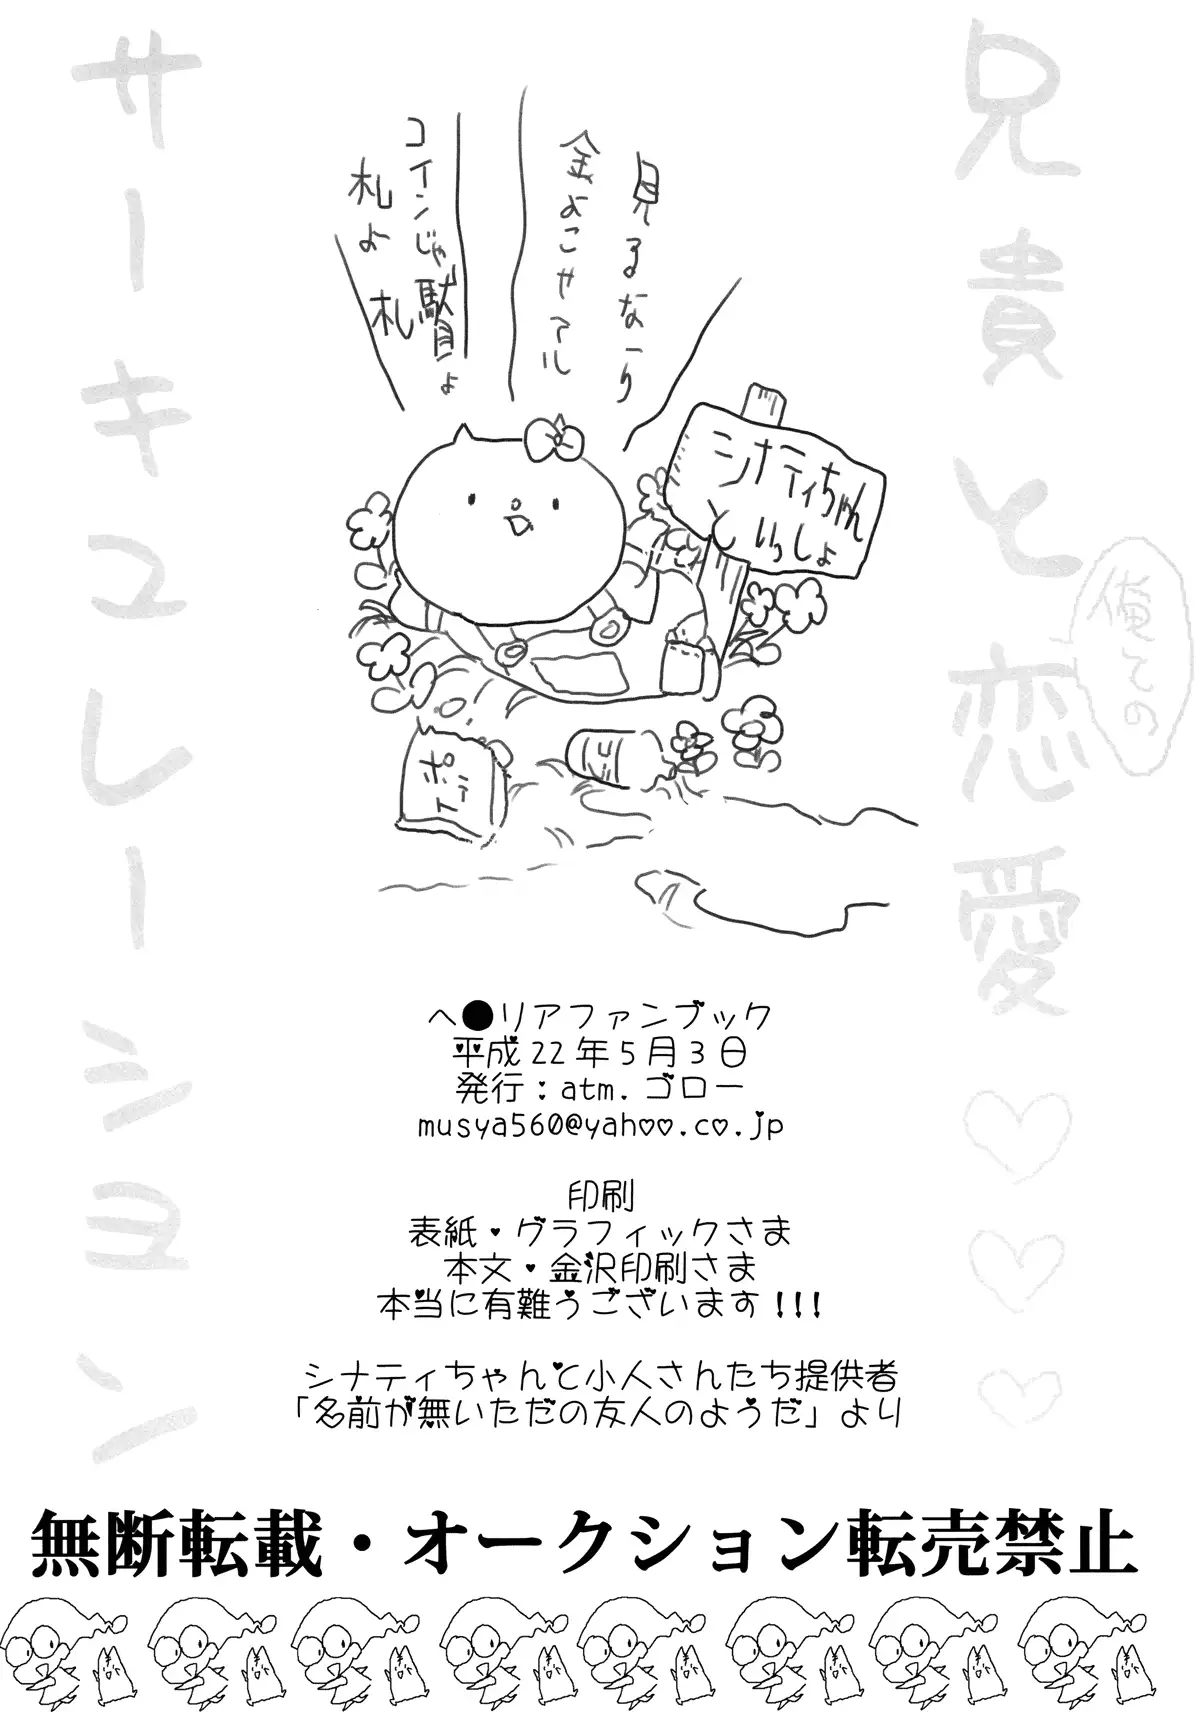 兄貴と恋愛♡♡♡
俺との
サーキュレーション
見るなーり
金よこせアル
コインじゃ駄目よ
札よ
札
シナティちゃん
といっしょ
ポテ
ヘ●リアファンブック
平成22年5月3日
発行：atm.ゴロー
musya560@yahoo.co.jp
印刷
表紙・グラフィックさま
本文・金沢印刷さま
本当に有難うございます!!!
シナティちゃんと小人さんたち提供者
「名前が無いただの友人のようだ」より
無断転載・オークション転売禁止